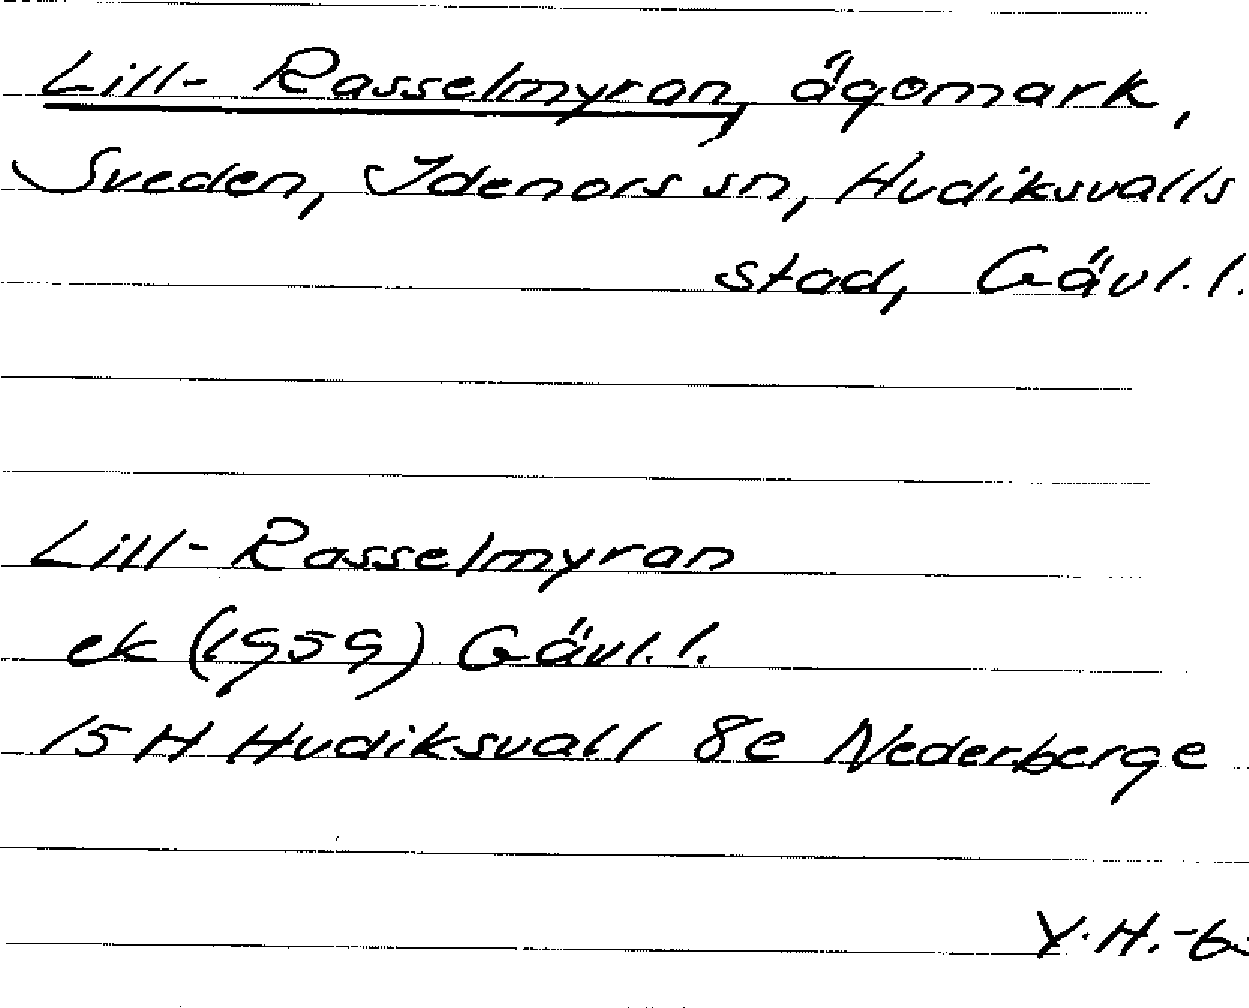 Lill-Rasselmyran, ägomark,
Sveden, Idenors sn, Hudiksvalls
stad, Gävl. l.
Lill-Rasselmyran
ek (1959) Gävl. l.
15 H Hudiksvall 8e Nederberge
Y.H.-